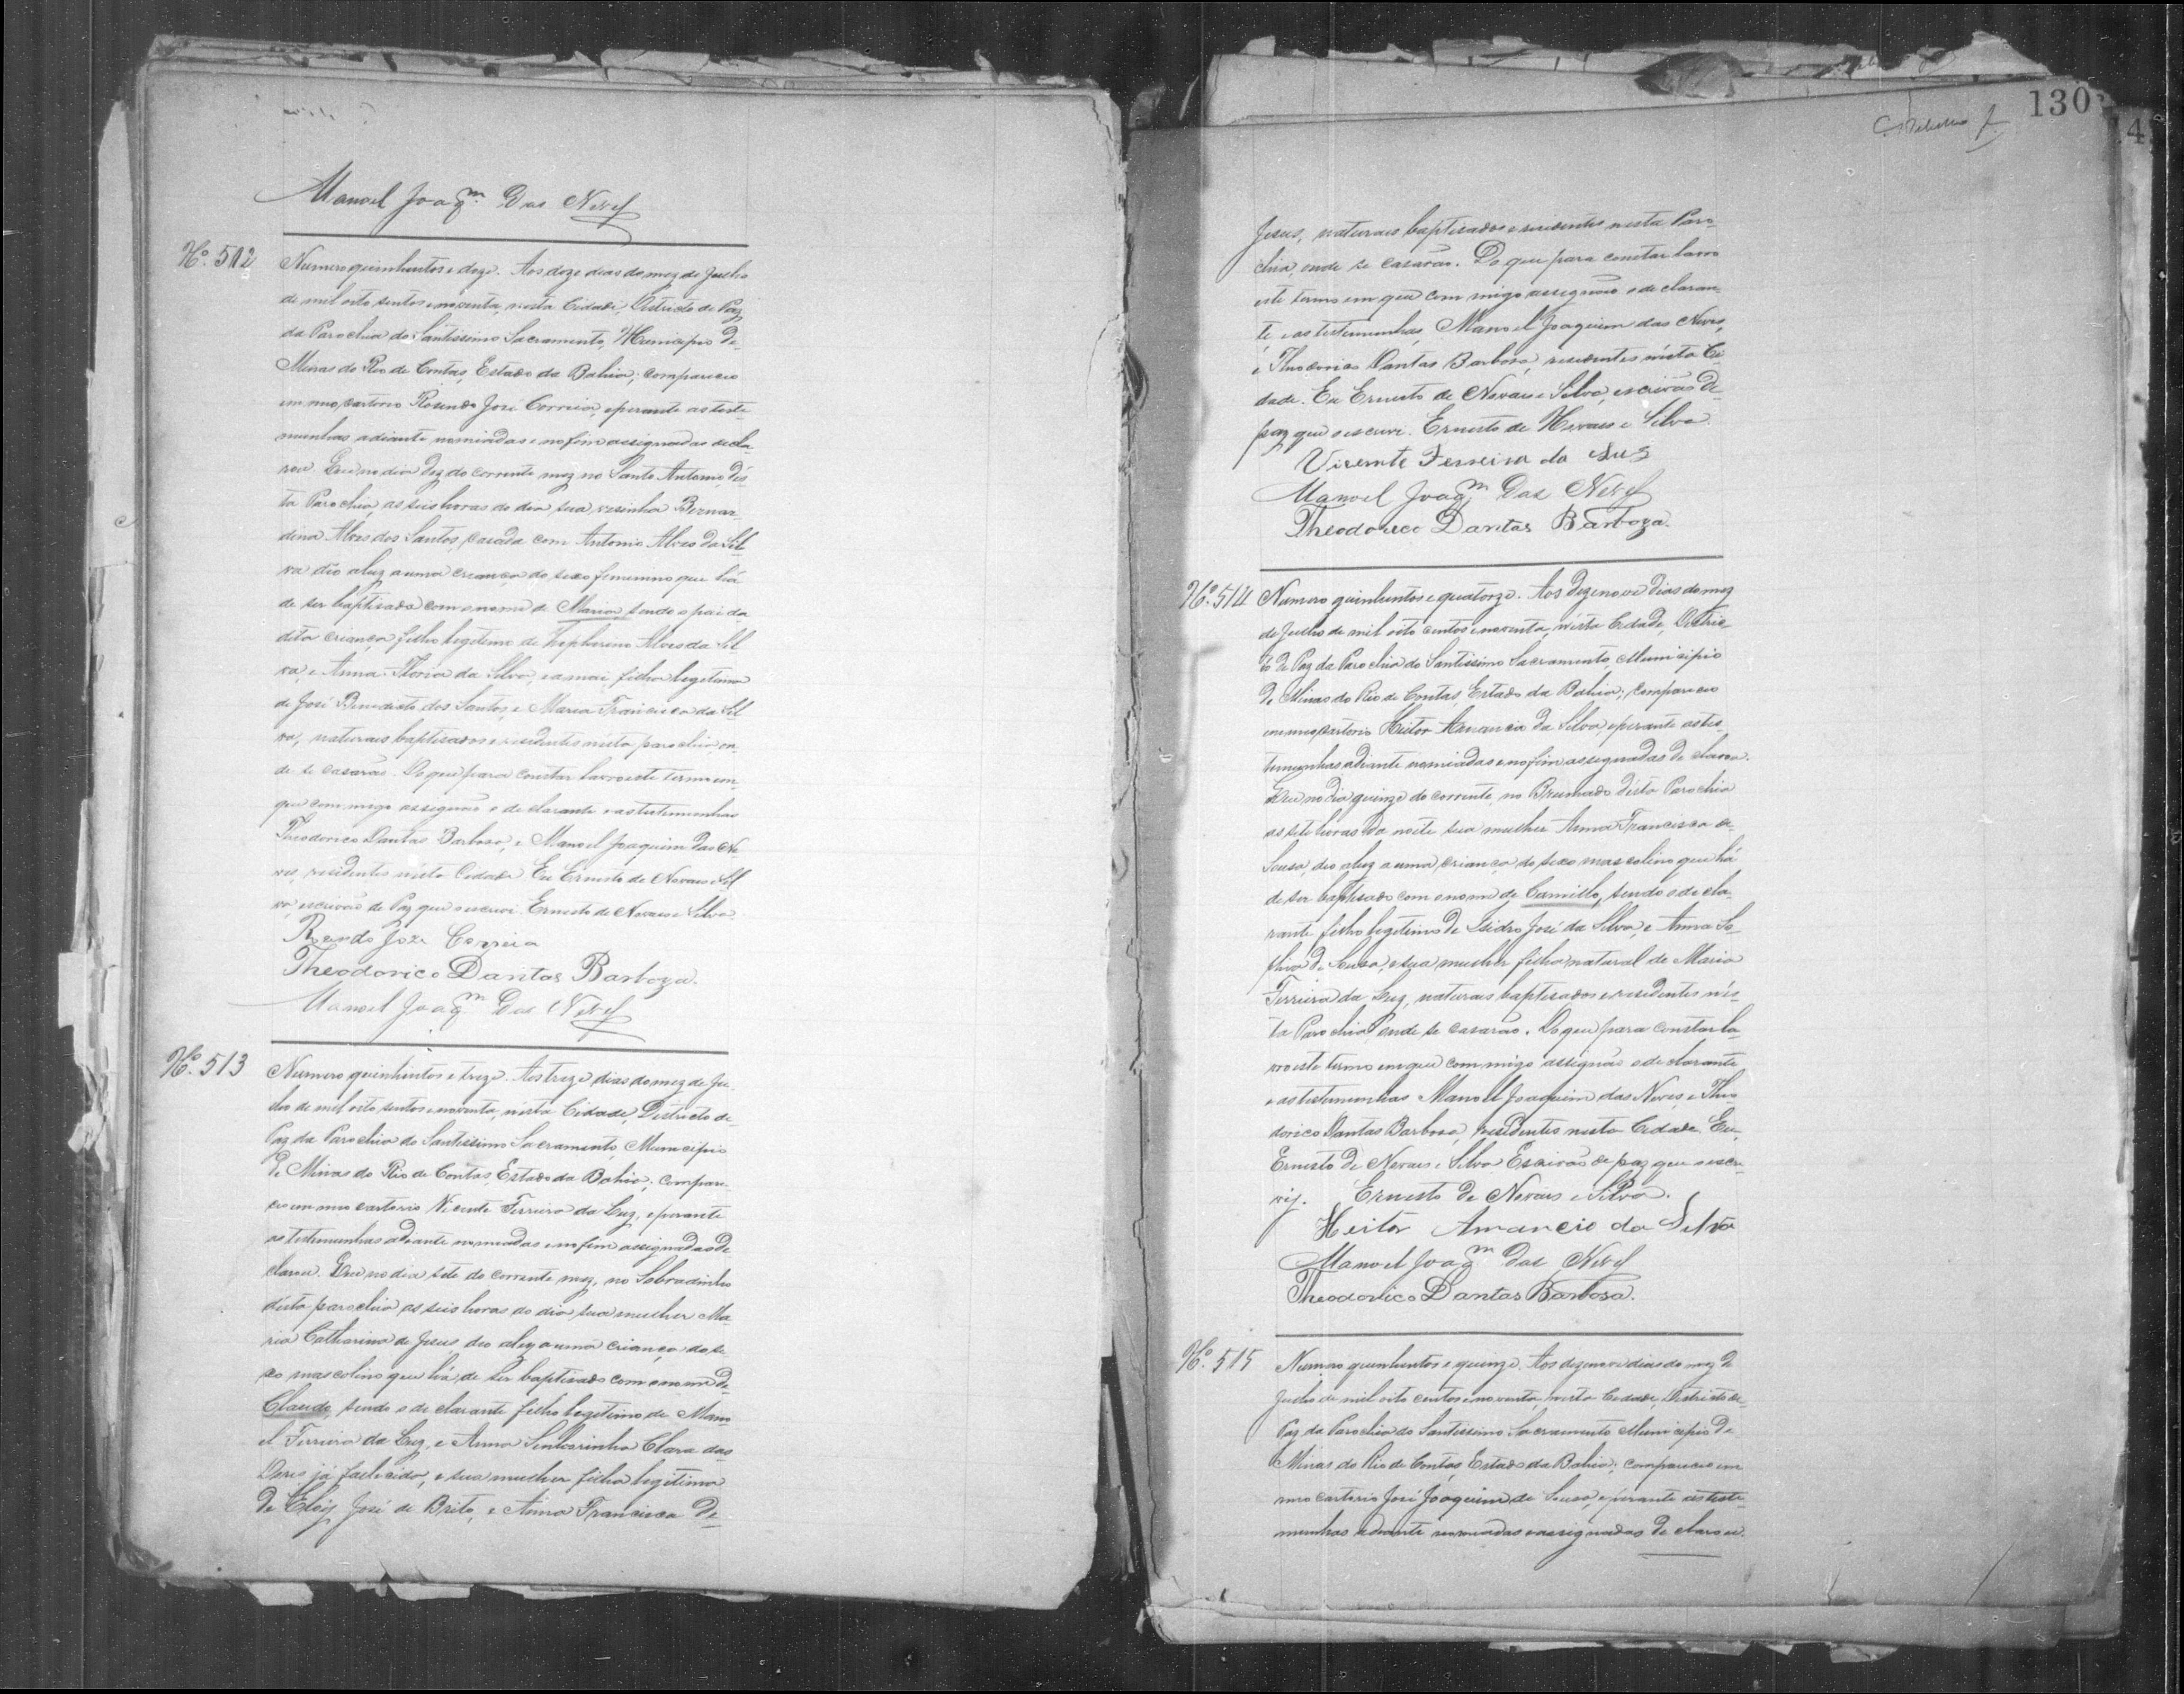 Manoel Joaqm Das Neves
No. 512
Numero quinhentos e doze. Aos doze dias do mez de Julho
de mil oito sentos e noventa, nesta Cidade, Districto de Paz
da Parochia do Santissimo Sacramento, Municipio de
Minas do Rio de Contas, Estado da Bahia; compareceo
em meo cartorio Rosendo José Correia, e perante as teste
munhas adiante nomiadas e no fim assignadas decla-
rou. Que no dia dez do corrente mez no Santo Antonio, dés-
ta Parochia, as seis horas do dia sua vesinha Bernar-
dina Alves dos Santos, casada com Antonio Alves da Sil-
va dêo a luz a uma creança do sexo femenino que há
de ser baptisada com o nome de Maria sendo o pai da
dita criança, filho legitimo de Alves da Sil
va, e Anna da Silva, e a mai filha legitima
de José Benedicto dos Santos, e Maria Francisca da Sil
va, naturais baptisados e residentes nésta parochia, on-
de se casarão. Do que para constar lavro este termo em-
que com migo assignão o declarante e as testemunhas
Theodorico Dantas Barbosa, e Manoel Joaquim das Ne-
ves, residentes nésta Cidade. Eu Ernesto de Novais e Sil
va, escrivão de Paz que o escrevi. Ernesto de Novais e Silva
Rozendo Joze Correia
Theodorico Dantas Barboza.
Manoel Joaqm Das Neves
No. 513
Numero quinhentos e treze. Aos treze dias do mez de Ju-
lho de mil oito sentos e noventa, nésta Cidade, Districto de
Paz da Parochia do Santissimo Sacramento, Municipio
de Minas do Rio de Contas, Estado da Bahia; compare-
ceo em meo cartorio Vicente Ferreira da Luz, e perante
as testemunhas adiante nomeadas e no fim assignadas de
clarou. Que no dia sete do corrente mez, no Sobradinho
désta parochia as seis horas do dia sua mulher Ma-
ria Catharina de Jesus, deo a luz a uma criança do se
xo mascolino que há de ser baptisado com o nome de
Claudo, sendo o declarante filho legitimo de Mano
el Ferreira da Luz, e Anna Senhorinha Clara das
Dores já falicida, e sua mulher filha legitima
de Eloiz José de Brito, e Anna Francisca de
130
Jesus, naturais baptisados e residentes nesta Paro-
chia, onde se casarão. Do que para constar lavro
este termo em que com migo assignão o declaran-
te e as testemunhas, Manoel Joaquim das Neves,
e Theodorico Dantas Barbosa, residentes nésta Ci
dade. Eu Ernesto de Novais e Silva, escrivão de
paz que o escrevi. Ernesto de Novais e Silva.
Vicente Ferreira da Luz
Manoel Joaqm Das Neves
Theodorico Dantas Barboza.
No. 514
Numero quinhentos e quatorze. Aos dezenove dias do mez
de Julho de mil oito centos e noventa, nésta Cidade, Distric-
to de Paz da Parochia do Santissimo Sacramento, Municipio
de Minas do Rio de Contas, Estado da Bahia; compareceo
em meo cartorio Heitor Amancio da Silva, e perante as tes-
temunhas adiante nomiadas e no fim assignadas declarou.
Que no dia quinze do corrente, no Brumado désta Parochia
as sete horas da noite sua mulher Anna Francisca de
Sousa, deo a luz a uma criança do sexo mascolino que há
de ser baptisado com o nome de Camillo, sendo o decla-
rante filho legitimo de Isidro José da Silva, e Anna So-
phia de Sousa, e sua mulher filha natural de Maria
Ferreira da Luz, naturais baptisados e residentes nés-
ta Parochia onde se casarão. Do que para constar la-
vro este termo em que com migo assignão o declarante
e as testemunhas Manoel Joaquim das Neves, e Theo
dorico Dantas Barbosa, residentes nesta Cidade. Eu,
Ernesto de Novais e Silva Escrivão de paz que o escre-
vij. Ernesto de Novais e Silva.
Heitor Amancio da Silva
Manoel Joaqm Das Neves
Theodorico Dantas Barbosa.
No. 515
Numero quinhentos e quinze. Aos dezenove dias do mez de
Julho de mil oito centos e noventa, nésta Cidade, Districto de
Paz da Parochia do Santissimo Sacramento Municipio de
Minas do Rio de Contas, Estado da Bahia; compareceo em
meo cartorio José Joaquim de Sousa, e perante as teste-
munhas adiante nomiadas e assignadas declarou.